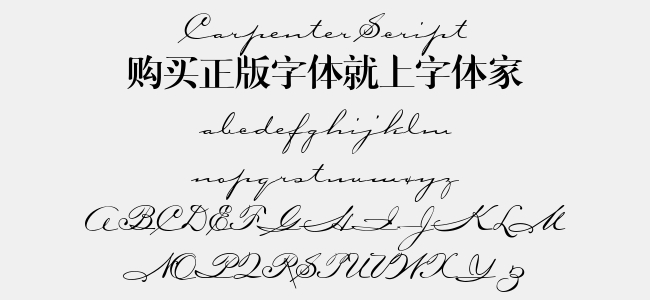 Carpenter Script
购买正版字体就上字体家
abcdefghijklm
nopqrstuvwxyz
ABCDEFGHIJKLM
NOPQRSTUVWXYZ